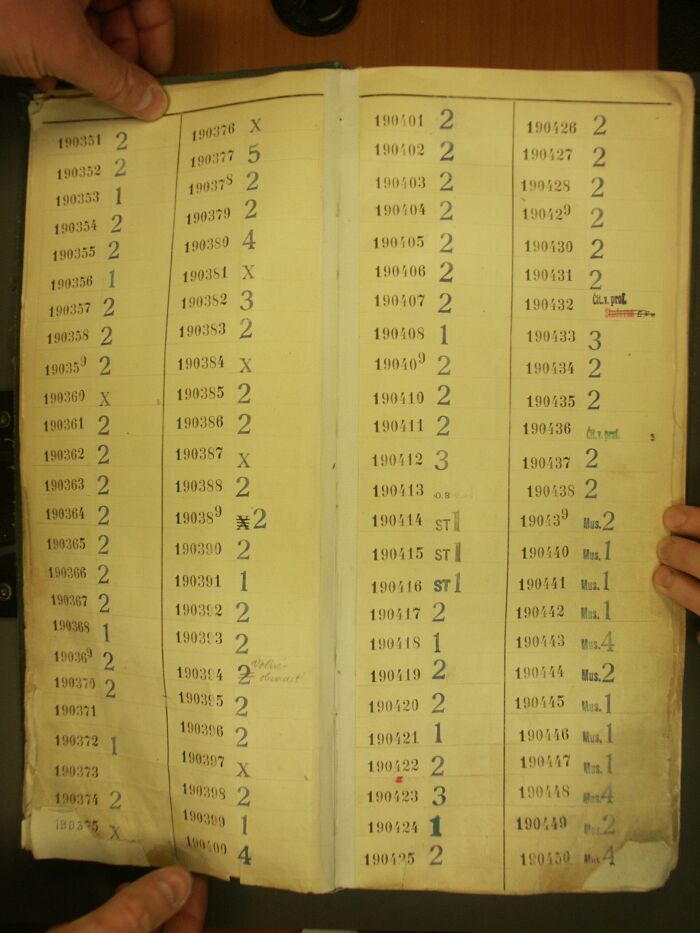 190351 2
190352 2
190353 1
190354 2
190355 2
190356 1
190357 2
190358 2
190359 2
190360 X
190361 2
190362 2
190363 2
190364 2
190365 2
190366 2
190367 2
190368 1
190369 2
190370 2
190371
190372 1
190373
190374 2
190375 X
190376 X
190377 5
190378 2
190379 2
190380 4
190381 X
190382 3
190383 2
190384 X
190385 2
190386 2
190387 X
190388 2
190389 X 2
190390 2
190391 1
190392 2
190393 2
190394 2
190395 2
190396 2
190397 X
190398 2
190399 1
190400 4
190401 2
190402 2
190403 2
190404 2
190405 2
190406 2
190407 2
190408 1
190409 2
190410 2
190411 2
190412 3
190413 O.B
190414 ST 1
190415 ST 1
190416 ST 1
190417 2
190418 1
190419 2
190420 2
190421 1
190422 2
190423 3
190424 1
190425 2
190426 2
190427 2
190428 2
190429 2
190430 2
190431 2
190432 Čít. v. prof.
190433 3
190434 2
190435 2
190436 Čít. v. prof.
190437 2
190438 2
190439 Mus. 2
190440 Mus. 1
190441 Mus. 1
190442 Mus. 1
190443 Mus. 4
190444 Mus. 2
190445 Mus. 1
190446 Mus. 1
190447 Mus. 1
190448 Mus. 4
190449 Mus. 2
190450 Mus. 4